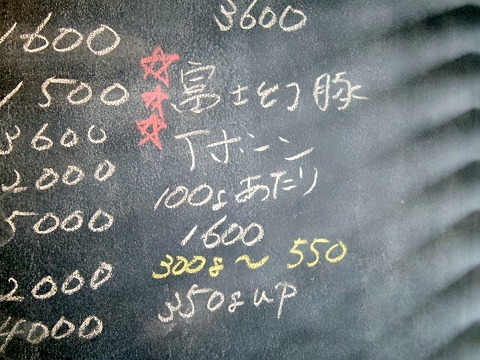 1600
1500
3600
2000
5000
2000
4000
3600
富士幻豚
Tボーン
100gあたり
1600
300g〜 550
350g up